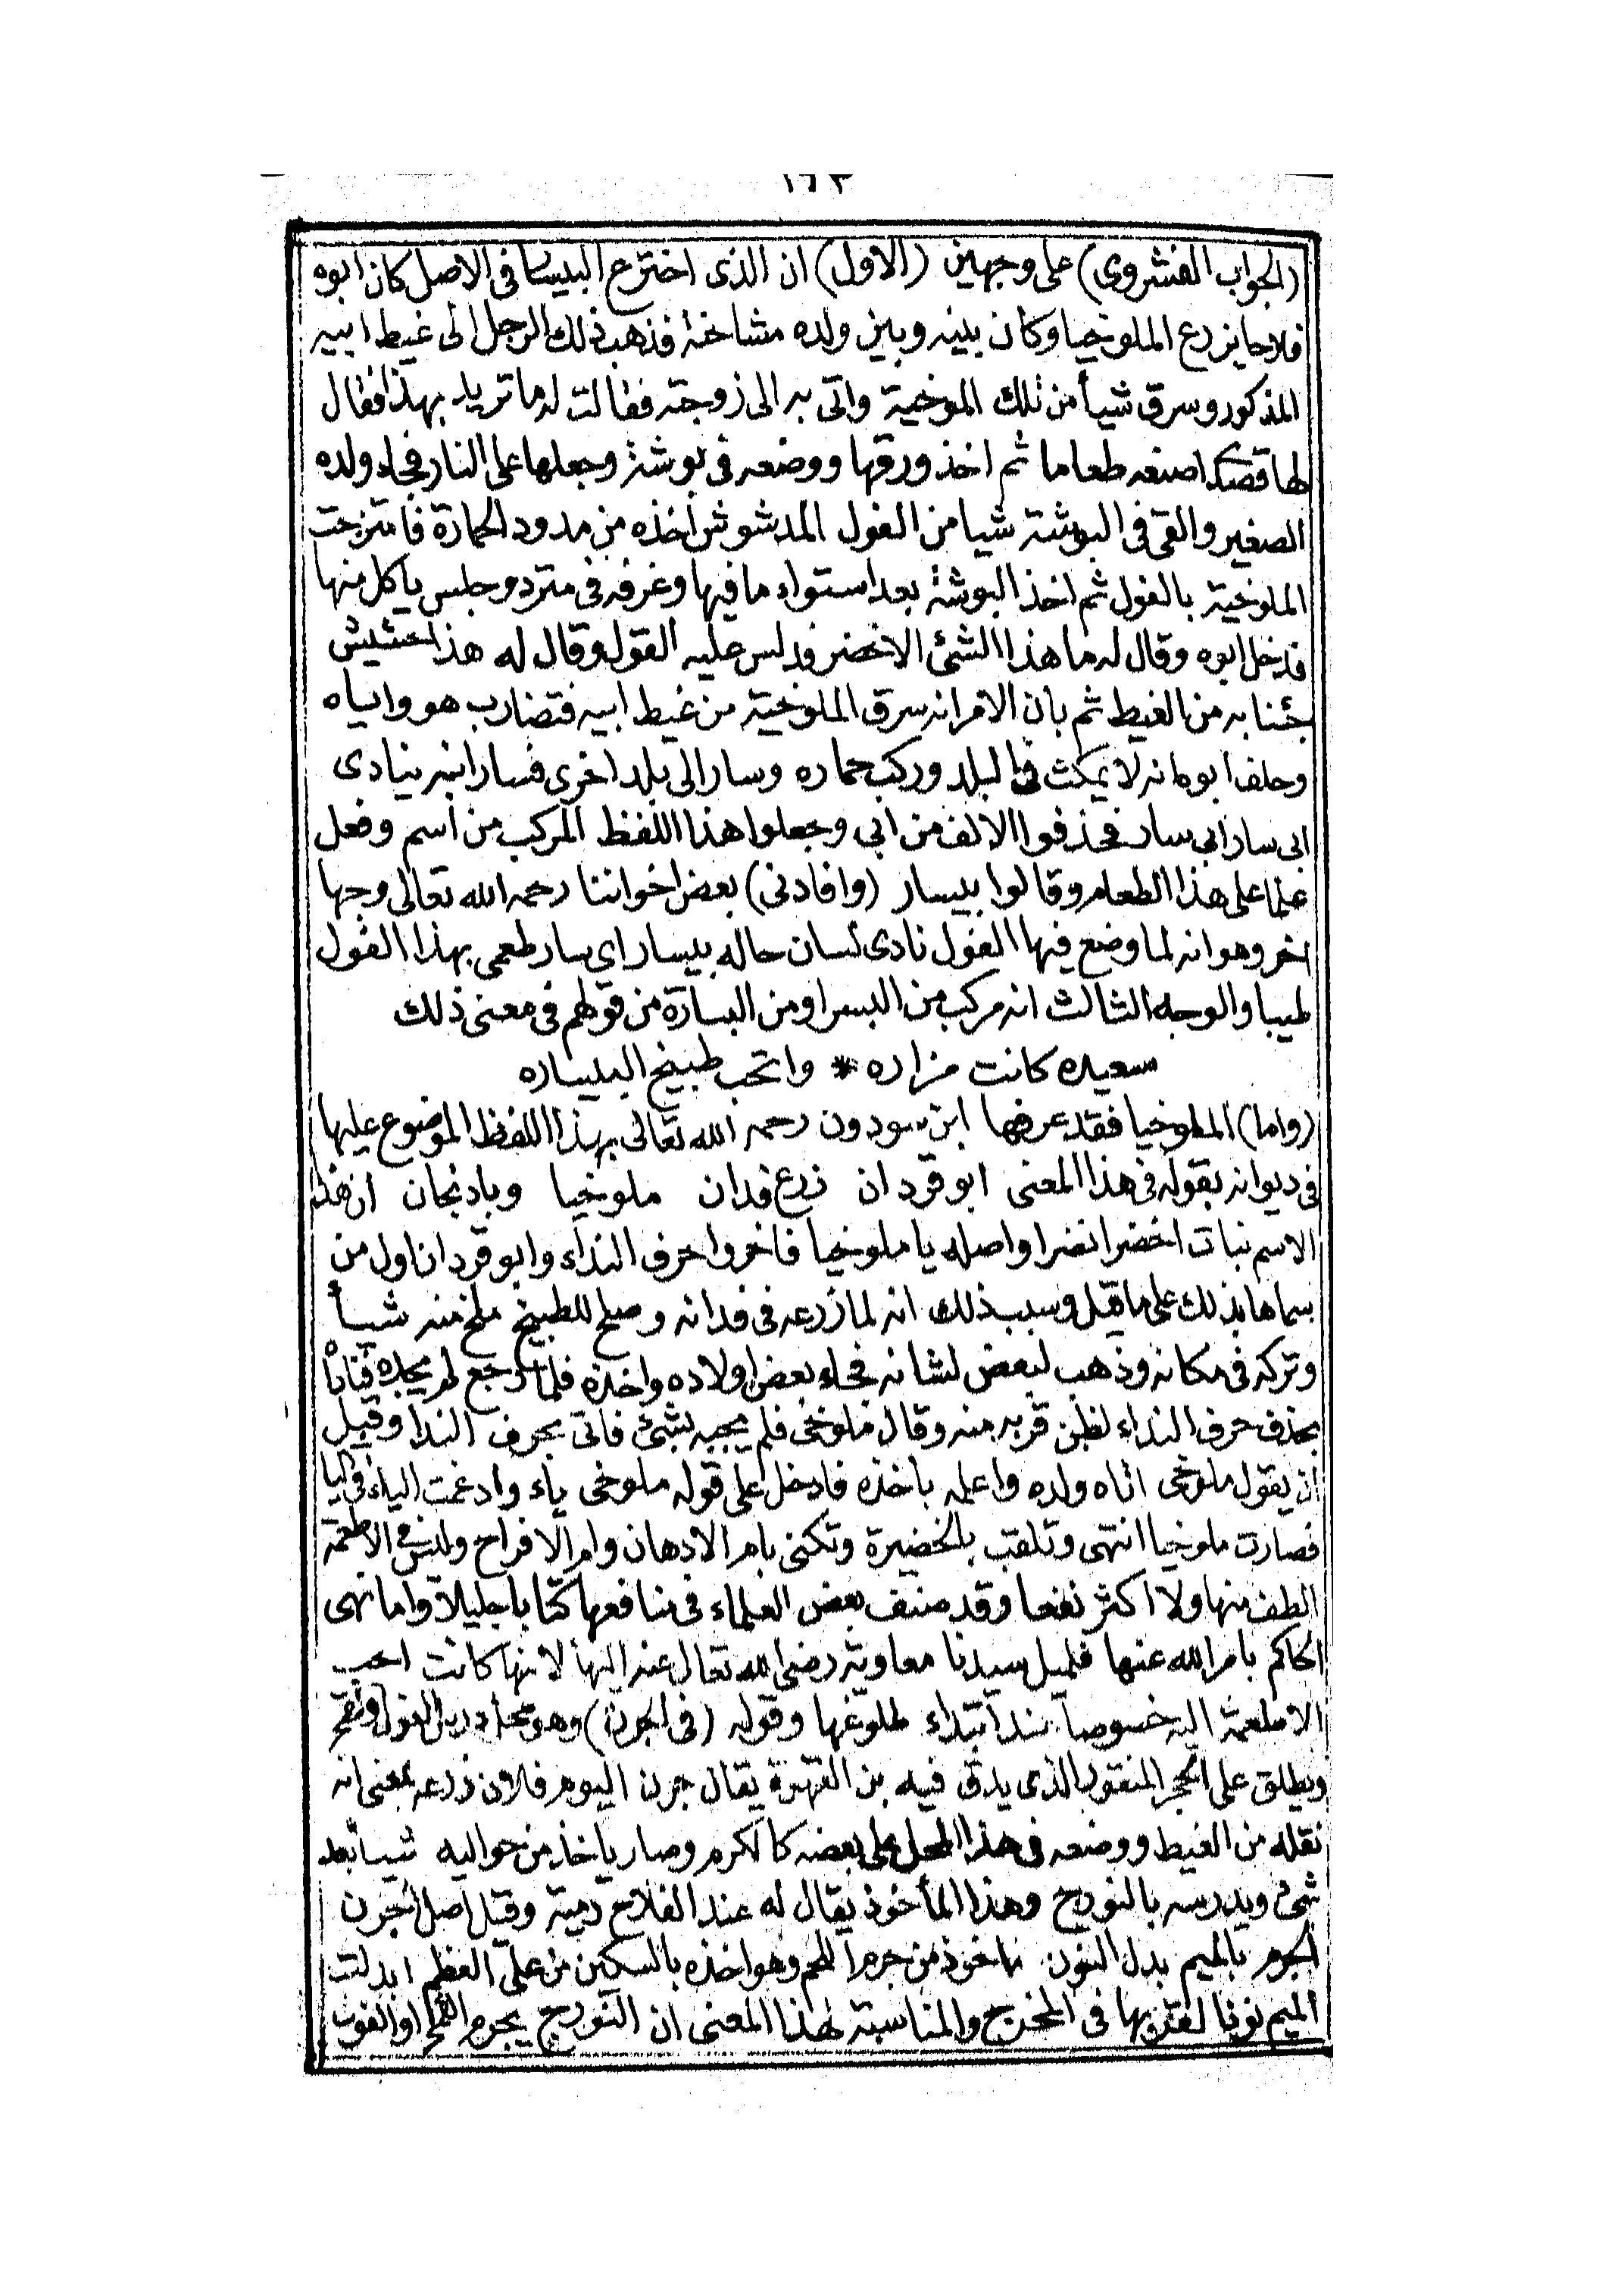 ١٦٣
(الجواب الفشروى) على وجهين (الاول) ان الذى اخترع البيسار فى الاصل كان ابوه
فلاحا يزرع الملوخيا وكان بينه وبين ولده مشاخنة فذهب ذلك الرجل الى غيط ابيه
المذكور وسرق شيأ من تلك الملوخية واتى به الى زوجته فقالت له ما تريد بهذا فقال
لها قصدى اصنعه طعاما ثم اخذ ورقها ووضعه فى بوشة وجعلها على النار فجاء ولده
الصغير والقى فى البوشة شيا من الفول المدشوش اخذه من مدود الحمارة فامتزجت
الملوخية بالفول ثم اخذ البوشة بعد استواء ما فيها وغرفه فى مترد وجلس ياكل منها
فدخل ابوه وقال له ما هذا الشئ الاخضر فدلس عليه القول وقال له هذا حشيش
جئنا به من الغيط ثم بان الامر انه سرق الملوخية من غيط ابيه فتضارب هو واياه
وحلف ابوه انه لا يمكث فى البلد وركب حماره وسار الى بلد اخرى فسار ابنه ينادى
ابى سار ابى سار فحذفوا الالف من ابى وجعلوا هذا اللفظ المركب من اسم وفعل
علما على هذا الطعام وقالوا بيسار (وافادنى) بعض اخواننا رحمه الله تعالى وجها
اخر وهو انه لما وضع فيها الفول نادى لسان حاله بيسار اى سار طعمى بهذا الفول
طيبا والوجه الثالث انه مركب من البسر او من البسارة من قولهم فى معنى ذلك
سعيده كانت مزاره * واتحب طبيخ البيساره
(واما) الملوخيا فقد عرفها ابن سودون رحمه الله تعالى بهذا اللفظ الموضوع عليها
فى ديوانه بقوله فى هذا المعنى ابو قردان زرع فدان ملوخيا وبادنجان ان هذا
الاسم نبات اخضر انضرا واصله يا ملوخيا فاخروا حرف النداء وابو قردان اول من
سماها بذلك على ما قيل وسبب ذلك انه لما زرعه فى فدانه وصلح للطبيخ ملخ منه شيأ
وتركه فى مكانه وذهب لبعض لشانه فجاء بعض اولاده واخذه فلما رجع لم يجده فنادا
بحذف حرف النداء لظن قربه منه وقال ملوخى فلم يجبه بشئ فاتى بحرف الندا وقبل
ان يقول ملوخى اتاه ولده واعلمه باخذه فادخل على قوله ملوخى ياء وادغمت الياء فى اليا
فصارت ملوخيا انتهى وتلقب بالخضيرة وتكنى بام الادهان وام الافراح وليس فى الاطعمة
الطف منها ولا اكثر نفعا وقد صنف بعض العلماء فى منافعها كتابا جليلا واما نهى
الحاكم بامر الله عنها فلميل سيدنا معاوية رضى الله تعالى عنه اليها لانها كانت احب
الاطعمة اليه خصوصا عند ابتداء طلوعها وقوله (فى الجرن) وهو محل دريس الفول والقمح
ويطلق على الحجر المنقور الذى يدق فيه بن القهوة يقال جرن اليوم فلان زرعه بمعنى انه
نقله من الغيط ووضعه فى هذا المحل على بعضه كالكرم وصار ياخذ من حواليه شيأ بعد
شئ ويدرسه بالنورج وهذا المأخوذ يقال له عند الفلاح رمية وقيل اصل الجرن
الجرم بالميم بدل النون ماخوذ من جرم اللحم وهو اخذه بالسكين من على العظم ابدلت
الميم نونا لقربها فى المخرج والمناسبة لهذا المعنى ان النورج يجرم القمح او الفول